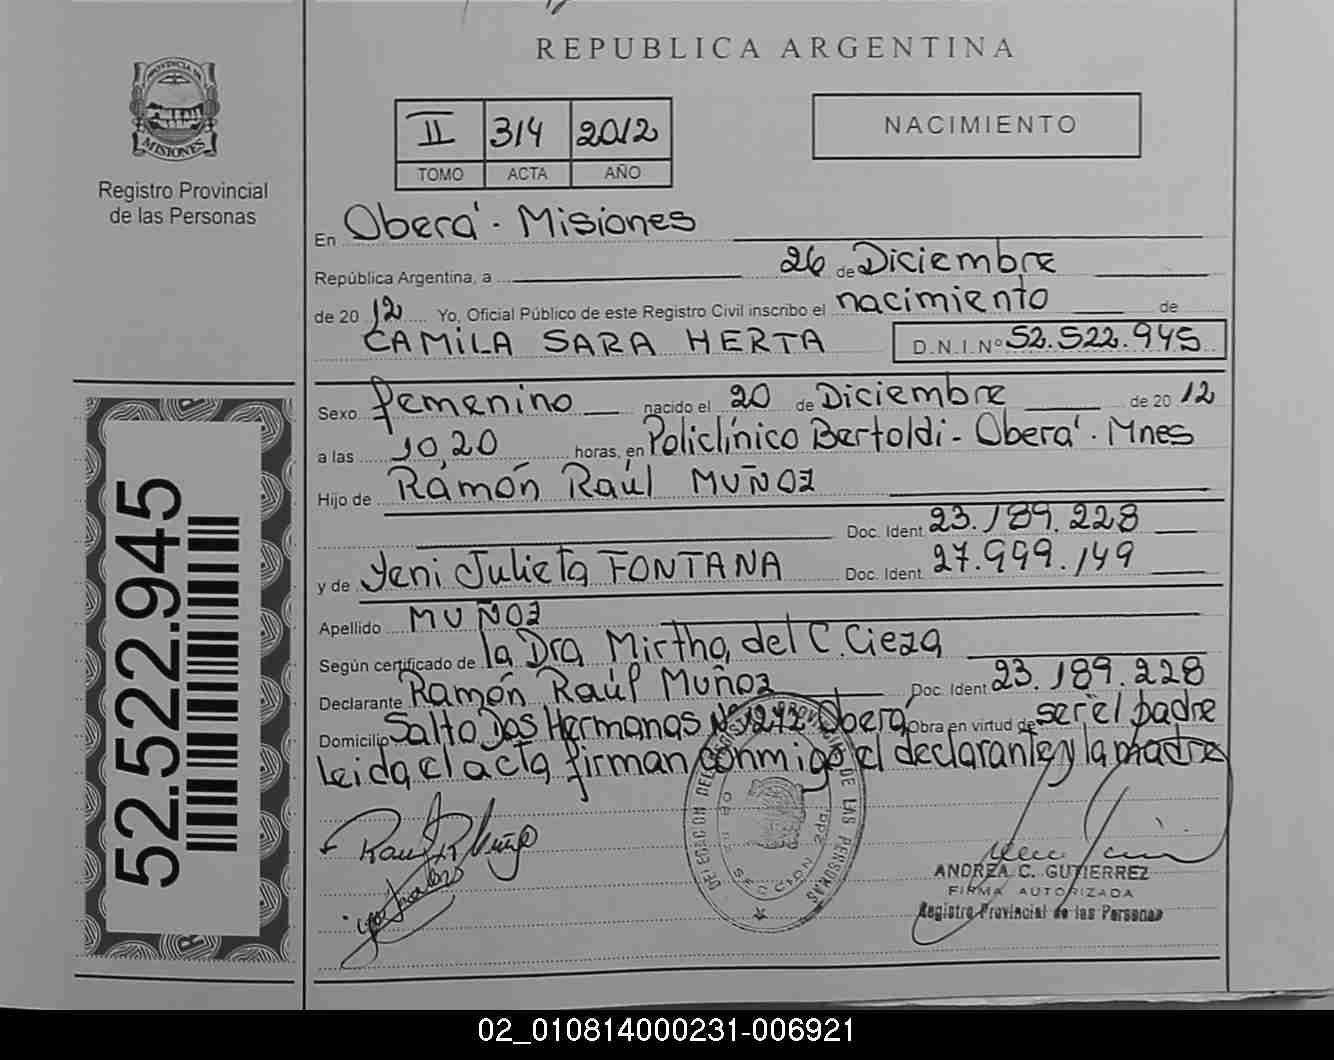 REPUBLICA ARGENTINA
PROVINCIA DE
MISIONES
Registro Provincial
de las Personas
II 314 2012
TOMO ACTA AÑO
NACIMIENTO
En Oberá - Misiones
República Argentina, a 26 de Diciembre
de 20 12 Yo, Oficial Público de este Registro Civil inscribo el nacimiento de
CAMILA SARA HERTA D.N.I.Nº 52.522.945
Sexo femenino nacido el 20 de Diciembre de 20 12
a las 10,20 horas, en Policlínico Bertoldi - Oberá - Mnes
Hijo de Rámón Raúl MUÑOZ
Doc. Ident 23.189.228
y de Yeni Julieta FONTANA Doc. Ident 27.999.149
Apellido MUÑOZ
Según certificado de la Dra Mirtha del C. Cieza
Declarante Ramón Raúl Muñoz Doc. Ident 23.189.228
Domicilio Salto Dos Hermanas Nº 1272 Oberá Obra en virtud de ser él padre
Leida el acta firman conmigo el declarante y la madre
52.522.945
DE LAS PERSONAS
SECCION 2da.
ANDREA C. GUTIERREZ
FIRMA AUTORIZADA
Registro Provincial de las Personas
02_010814000231-006921